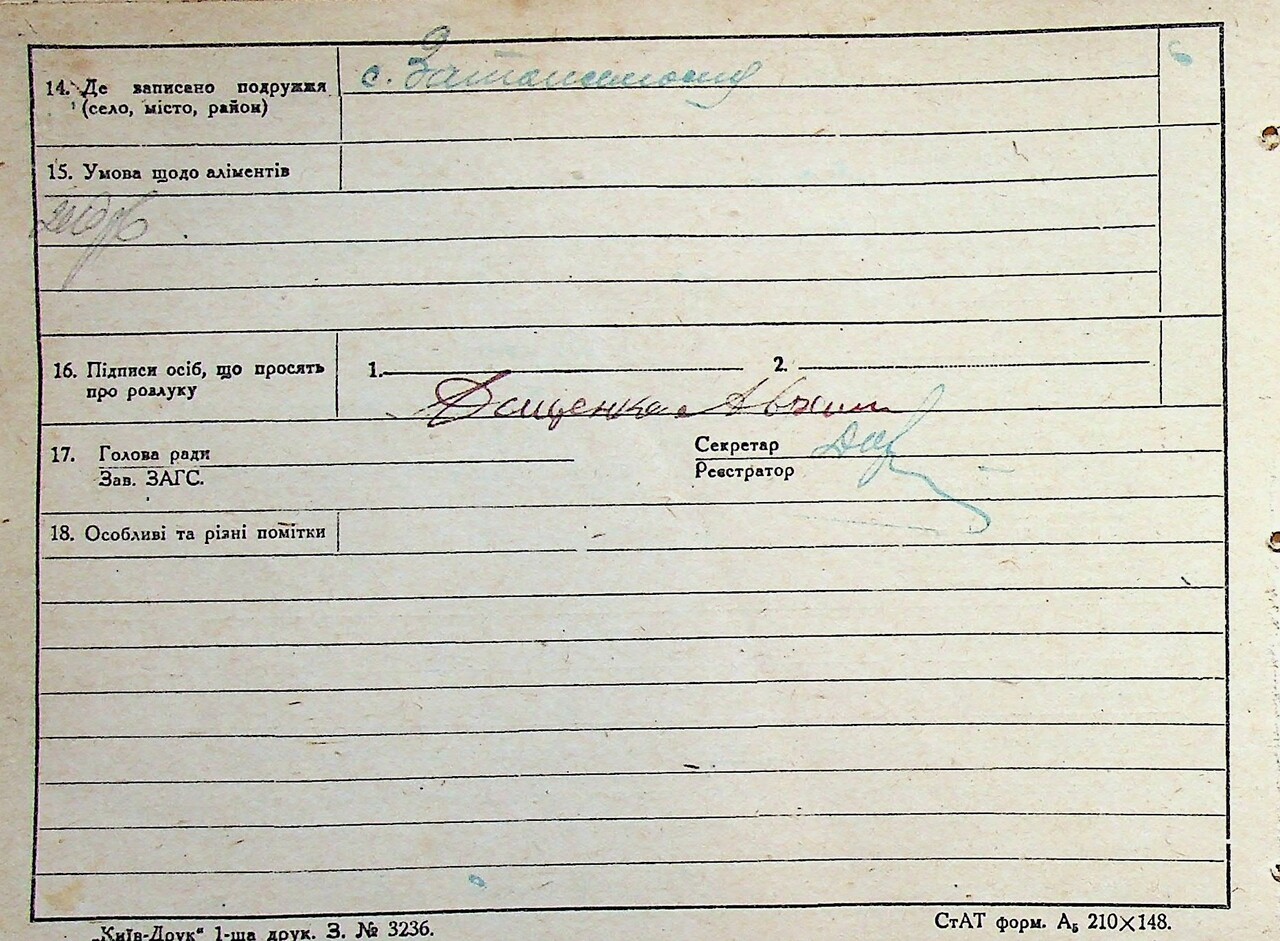 14. Де записано подружжя
(село, місто, район)
с.
15. Умова щодо аліментів
16. Підписи осіб, що просять
про розлуку
1.
2.
17. Голова ради
Зав. ЗАГС.
Секретар
Реєстратор
18. Особливі та різні помітки
„Київ-Друк“ 1-ша друк. З. № 3236.
СтАТ форм. А₅ 210×148.